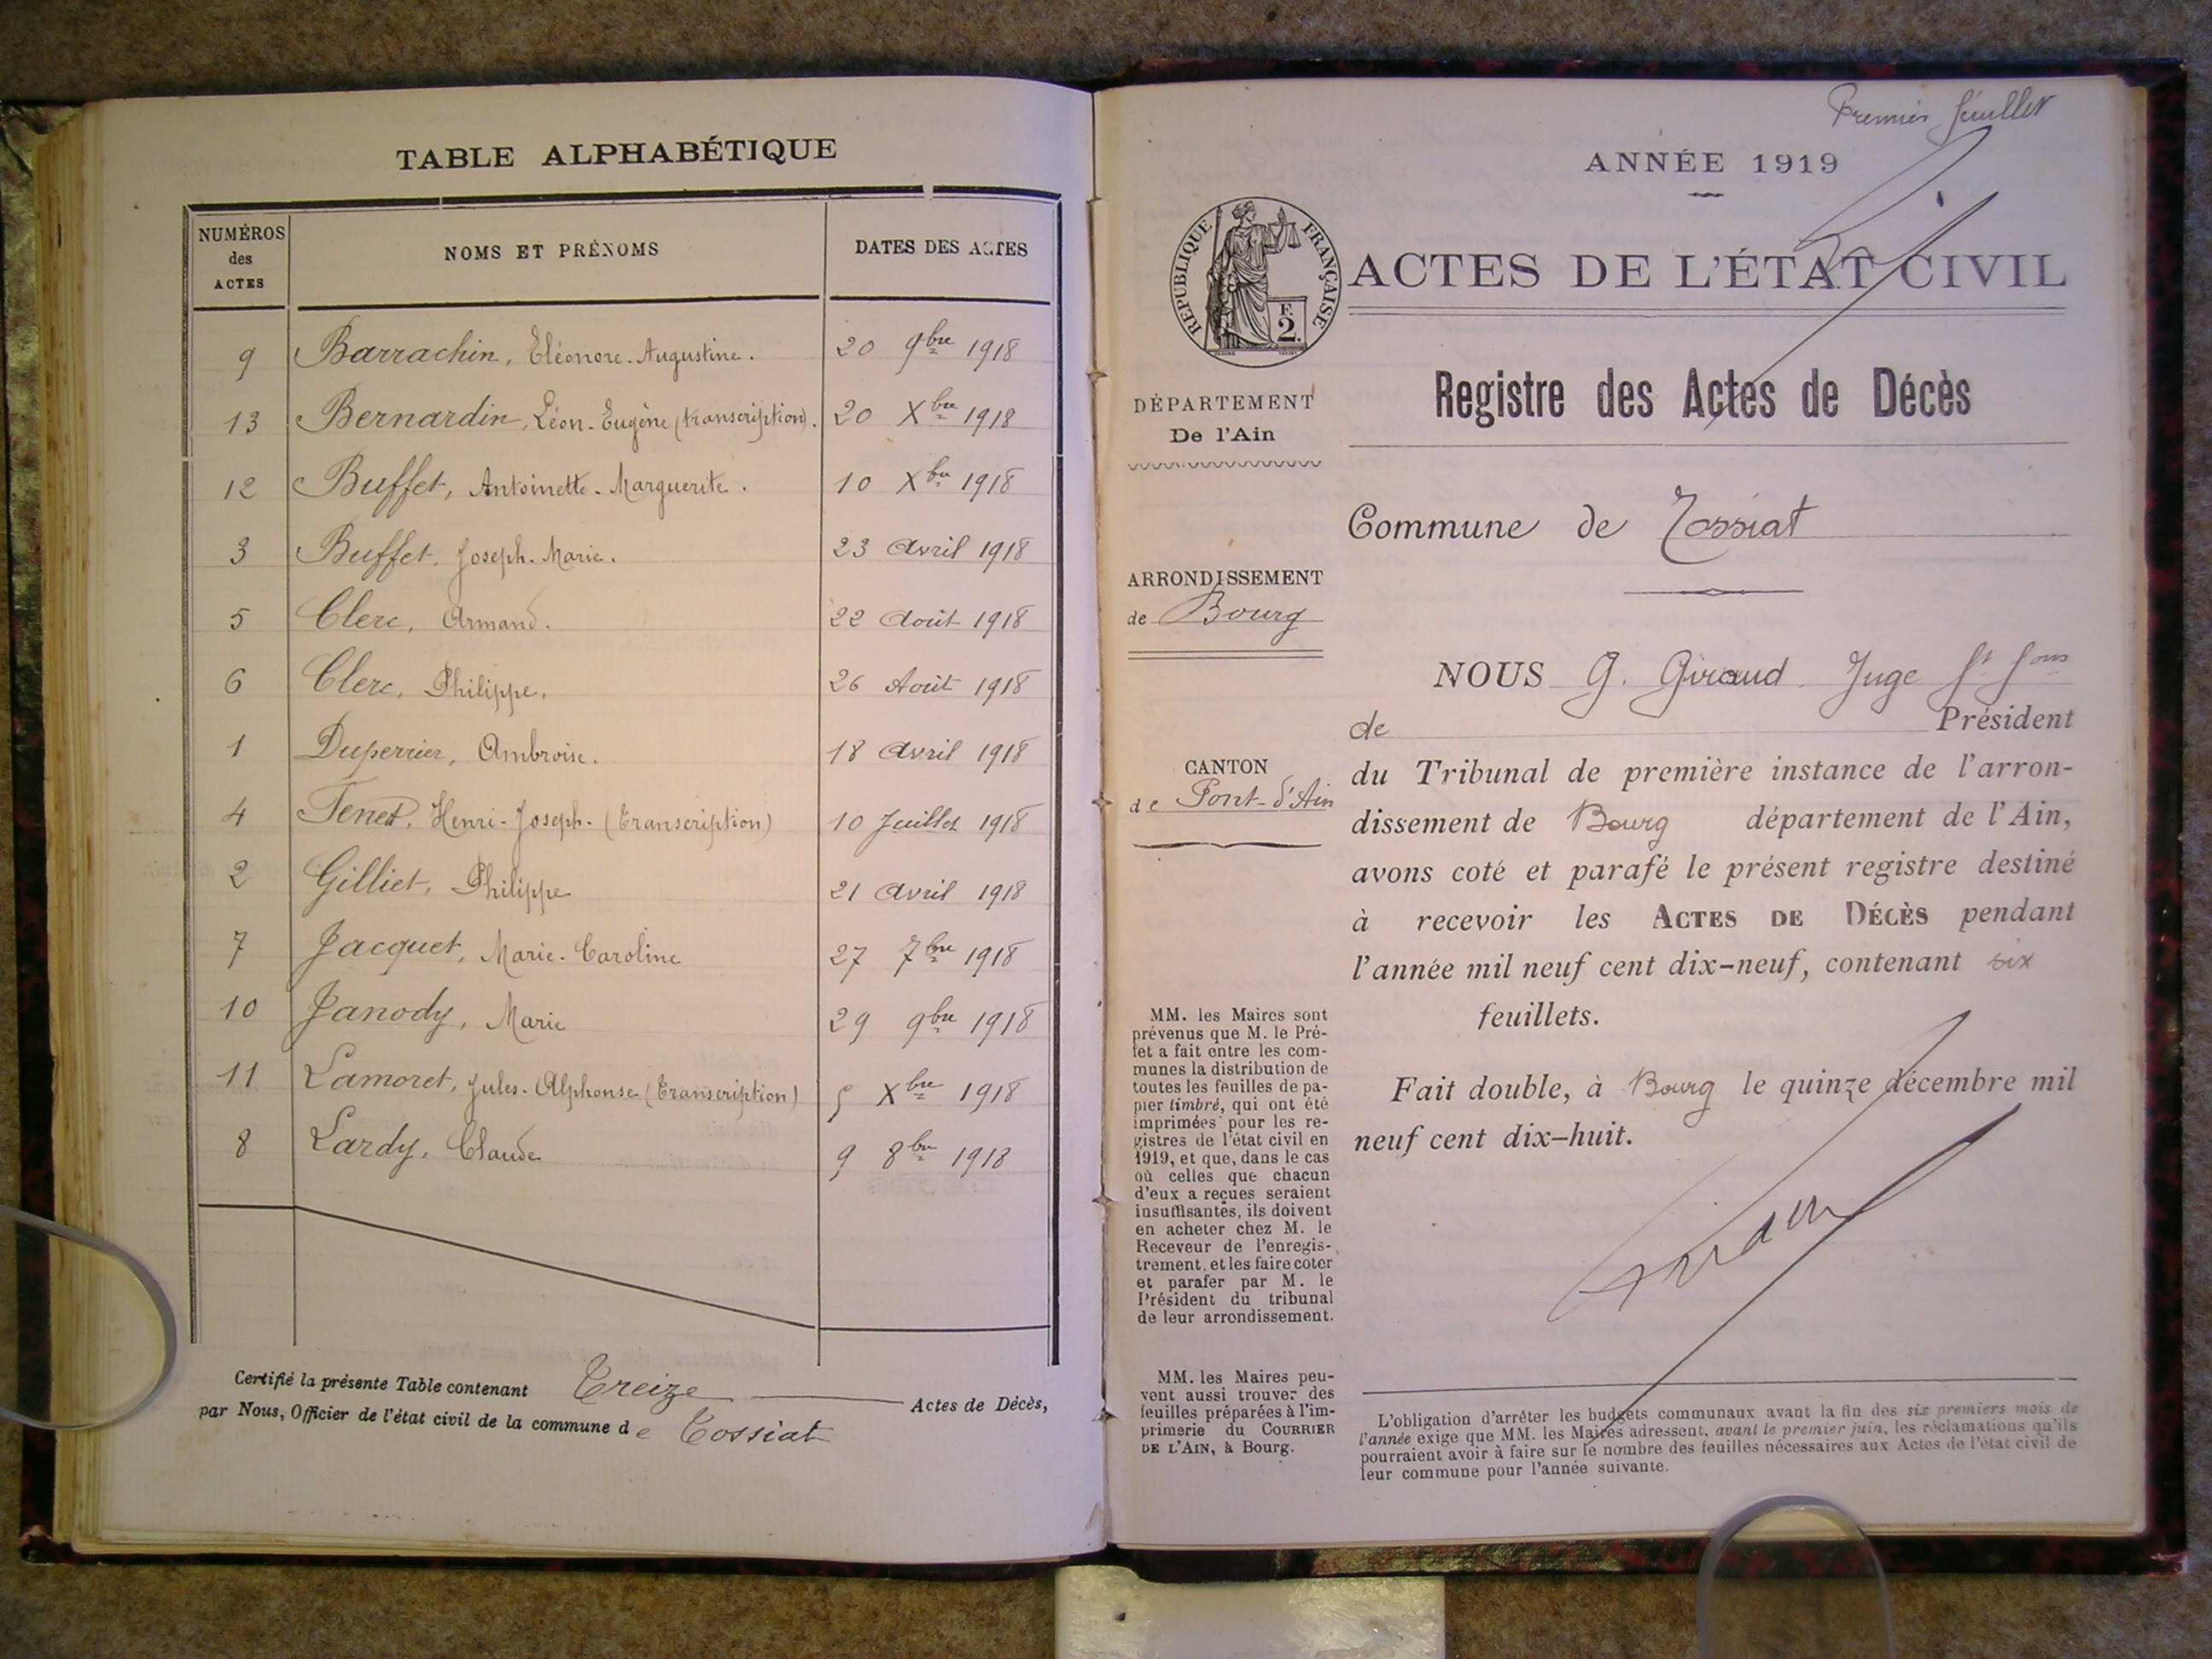 TABLE ALPHABÉTIQUE
NUMÉROS des ACTES
NOMS ET PRÉNOMS
DATES DES ACTES
9 Barrachin, Eléonore-Augustine. 20 9bre 1918
13 Bernardin, Léon-Eugène (transcription). 20 Xbre 1918
12 Buffet, Antoinette-Marguerite. 10 Xbre 1918
3 Buffet, Joseph-Marie. 23 Avril 1918
5 Clerc, Armand. 22 Août 1918
6 Clerc, Philippe. 26 Août 1918
1 Duperrier, Ambroise. 18 Avril 1918
4 Fenet, Henri-Joseph-(transcription) 10 Juillet 1918
2 Gilliet, Philippe 21 Avril 1918
7 Jacquet, Marie-Caroline 27 7bre 1918
10 Janody, Marie 29 9bre 1918
11 Lamoret, Jules-Alphonse (transcription) 5 Xbre 1918
8 Lardy, Claude 9 8bre 1918
Certifié la présente Table contenant Treize Actes de Décès,
par Nous, Officier de l'état civil de la commune de Tossiat
Premier feuillet
ANNÉE 1919
RÉPUBLIQUE FRANÇAISE
F.
2.
ACTES DE L'ÉTAT CIVIL
Registre des Actes de Décès
DÉPARTEMENT
De l'Ain
Commune de Tossiat
ARRONDISSEMENT
de Bourg
CANTON
de Pont-d'Ain
NOUS G. Giraud Juge
de Président
du Tribunal de première instance de l'arron-
dissement de Bourg département de l'Ain,
avons coté et parafé le présent registre destiné
à recevoir les ACTES DE DÉCÈS pendant
l'année mil neuf cent dix-neuf, contenant six
feuillets.
Fait double, à Bourg le quinze décembre mil
neuf cent dix-huit.
Giraud
MM. les Maires sont
prévenus que M. le Pré-
fet a fait entre les com-
munes la distribution de
toutes les feuilles de pa-
pier timbré, qui ont été
imprimées pour les re-
gistres de l'état civil en
1919, et que, dans le cas
où celles que chacun
d'eux a reçues seraient
insuffisantes, ils doivent
en acheter chez M. le
Receveur de l'enregis-
trement, et les faire coter
et parafer par M. le
Président du tribunal
de leur arrondissement.
MM. les Maires peu-
vent aussi trouver des
feuilles préparées à l'im-
primerie du COURRIER
DE L'AIN, à Bourg.
L'obligation d'arrêter les budgets communaux avant la fin des six premiers mois de
l'année exige que MM. les Maires adressent, avant le premier juin, les réclamations qu'ils
pourraient avoir à faire sur le nombre des feuilles nécessaires aux Actes de l'état civil de
leur commune pour l'année suivante.